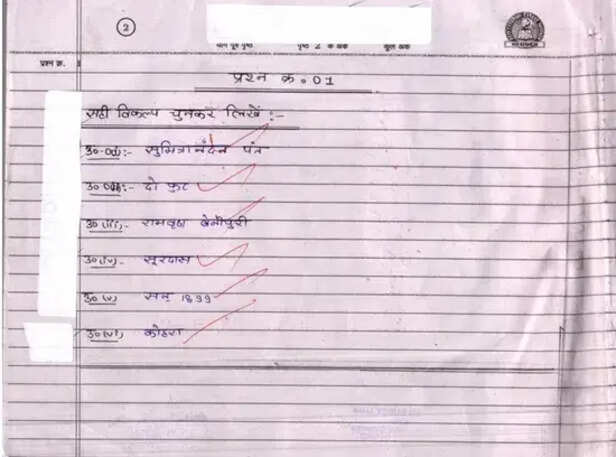 2
योग पूर्व पृष्ठ पृष्ठ 2 के अंक कुल अंक
प्रश्न क्र.
प्रश्न क्र. 01
सही विकल्प चुनकर लिखें :-
उ०(i):- सुमित्रानंदन पंत
उ०(ii):- दो फुट
उ०(iii):- रामवृक्ष बेनीपुरी
उ०(iv):- सूरदास
उ०(v) सन् 1899
उ०(vi) कोहरा